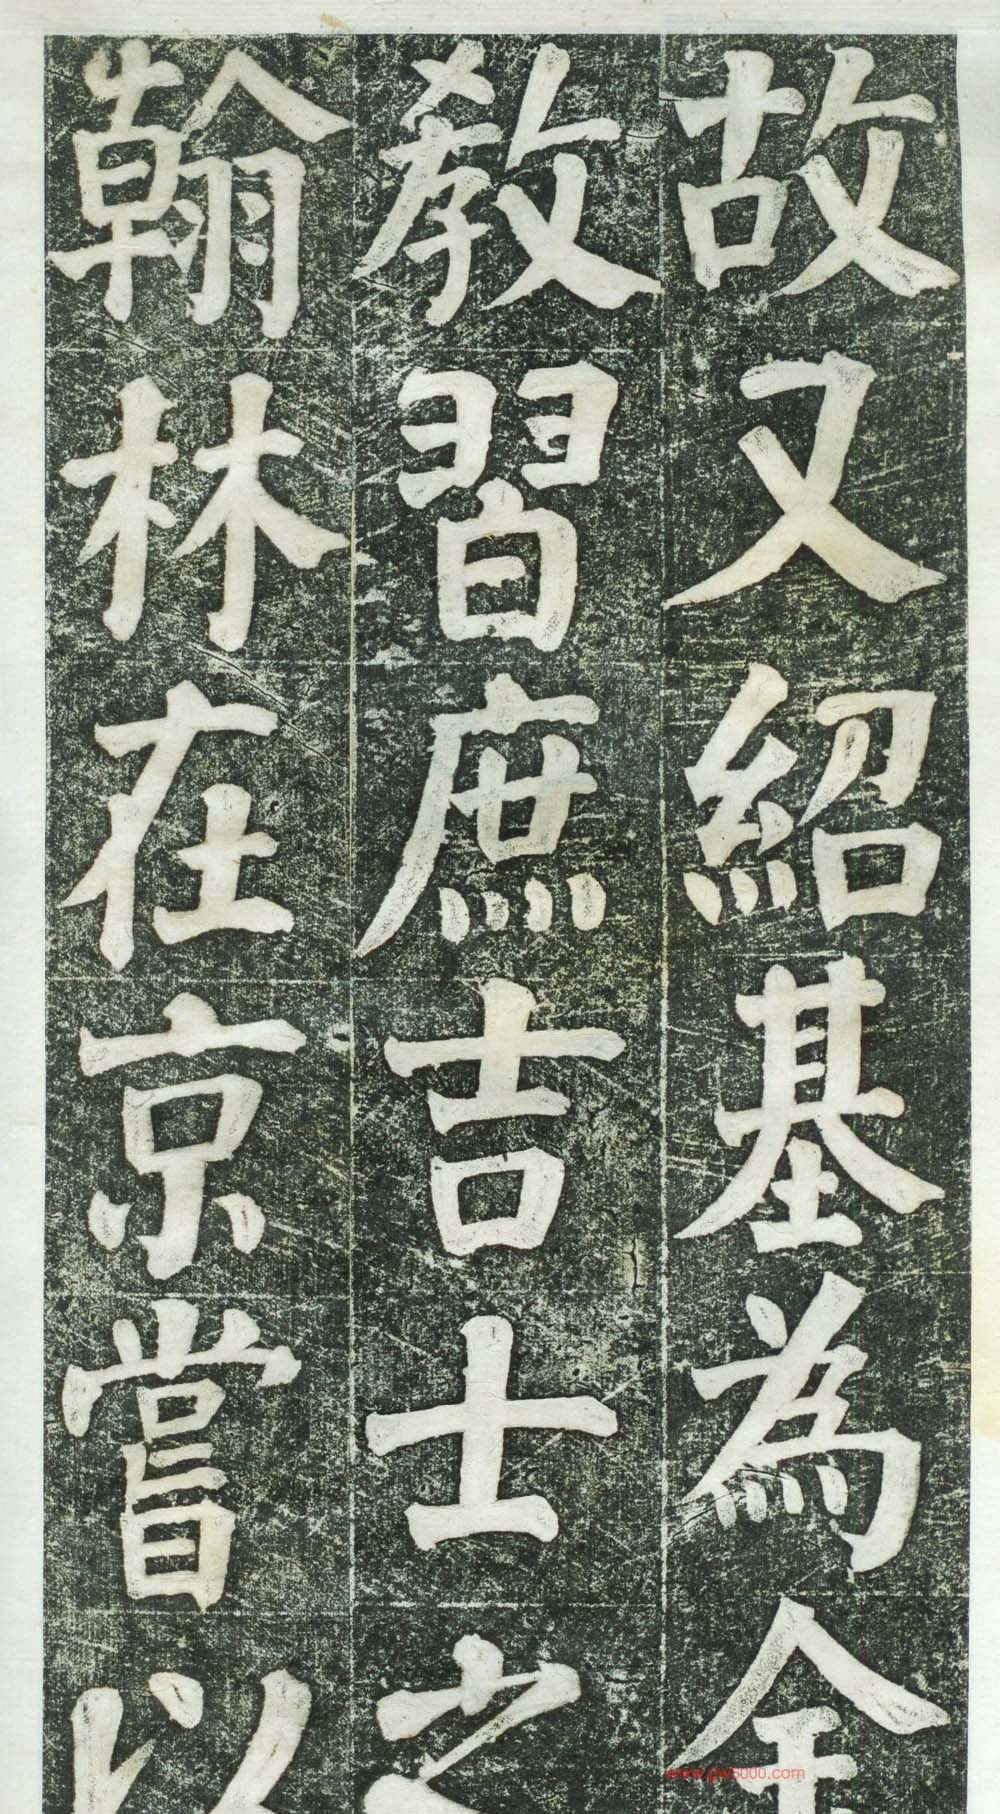 故又紹基為
教習庶吉士之
翰林在京嘗以